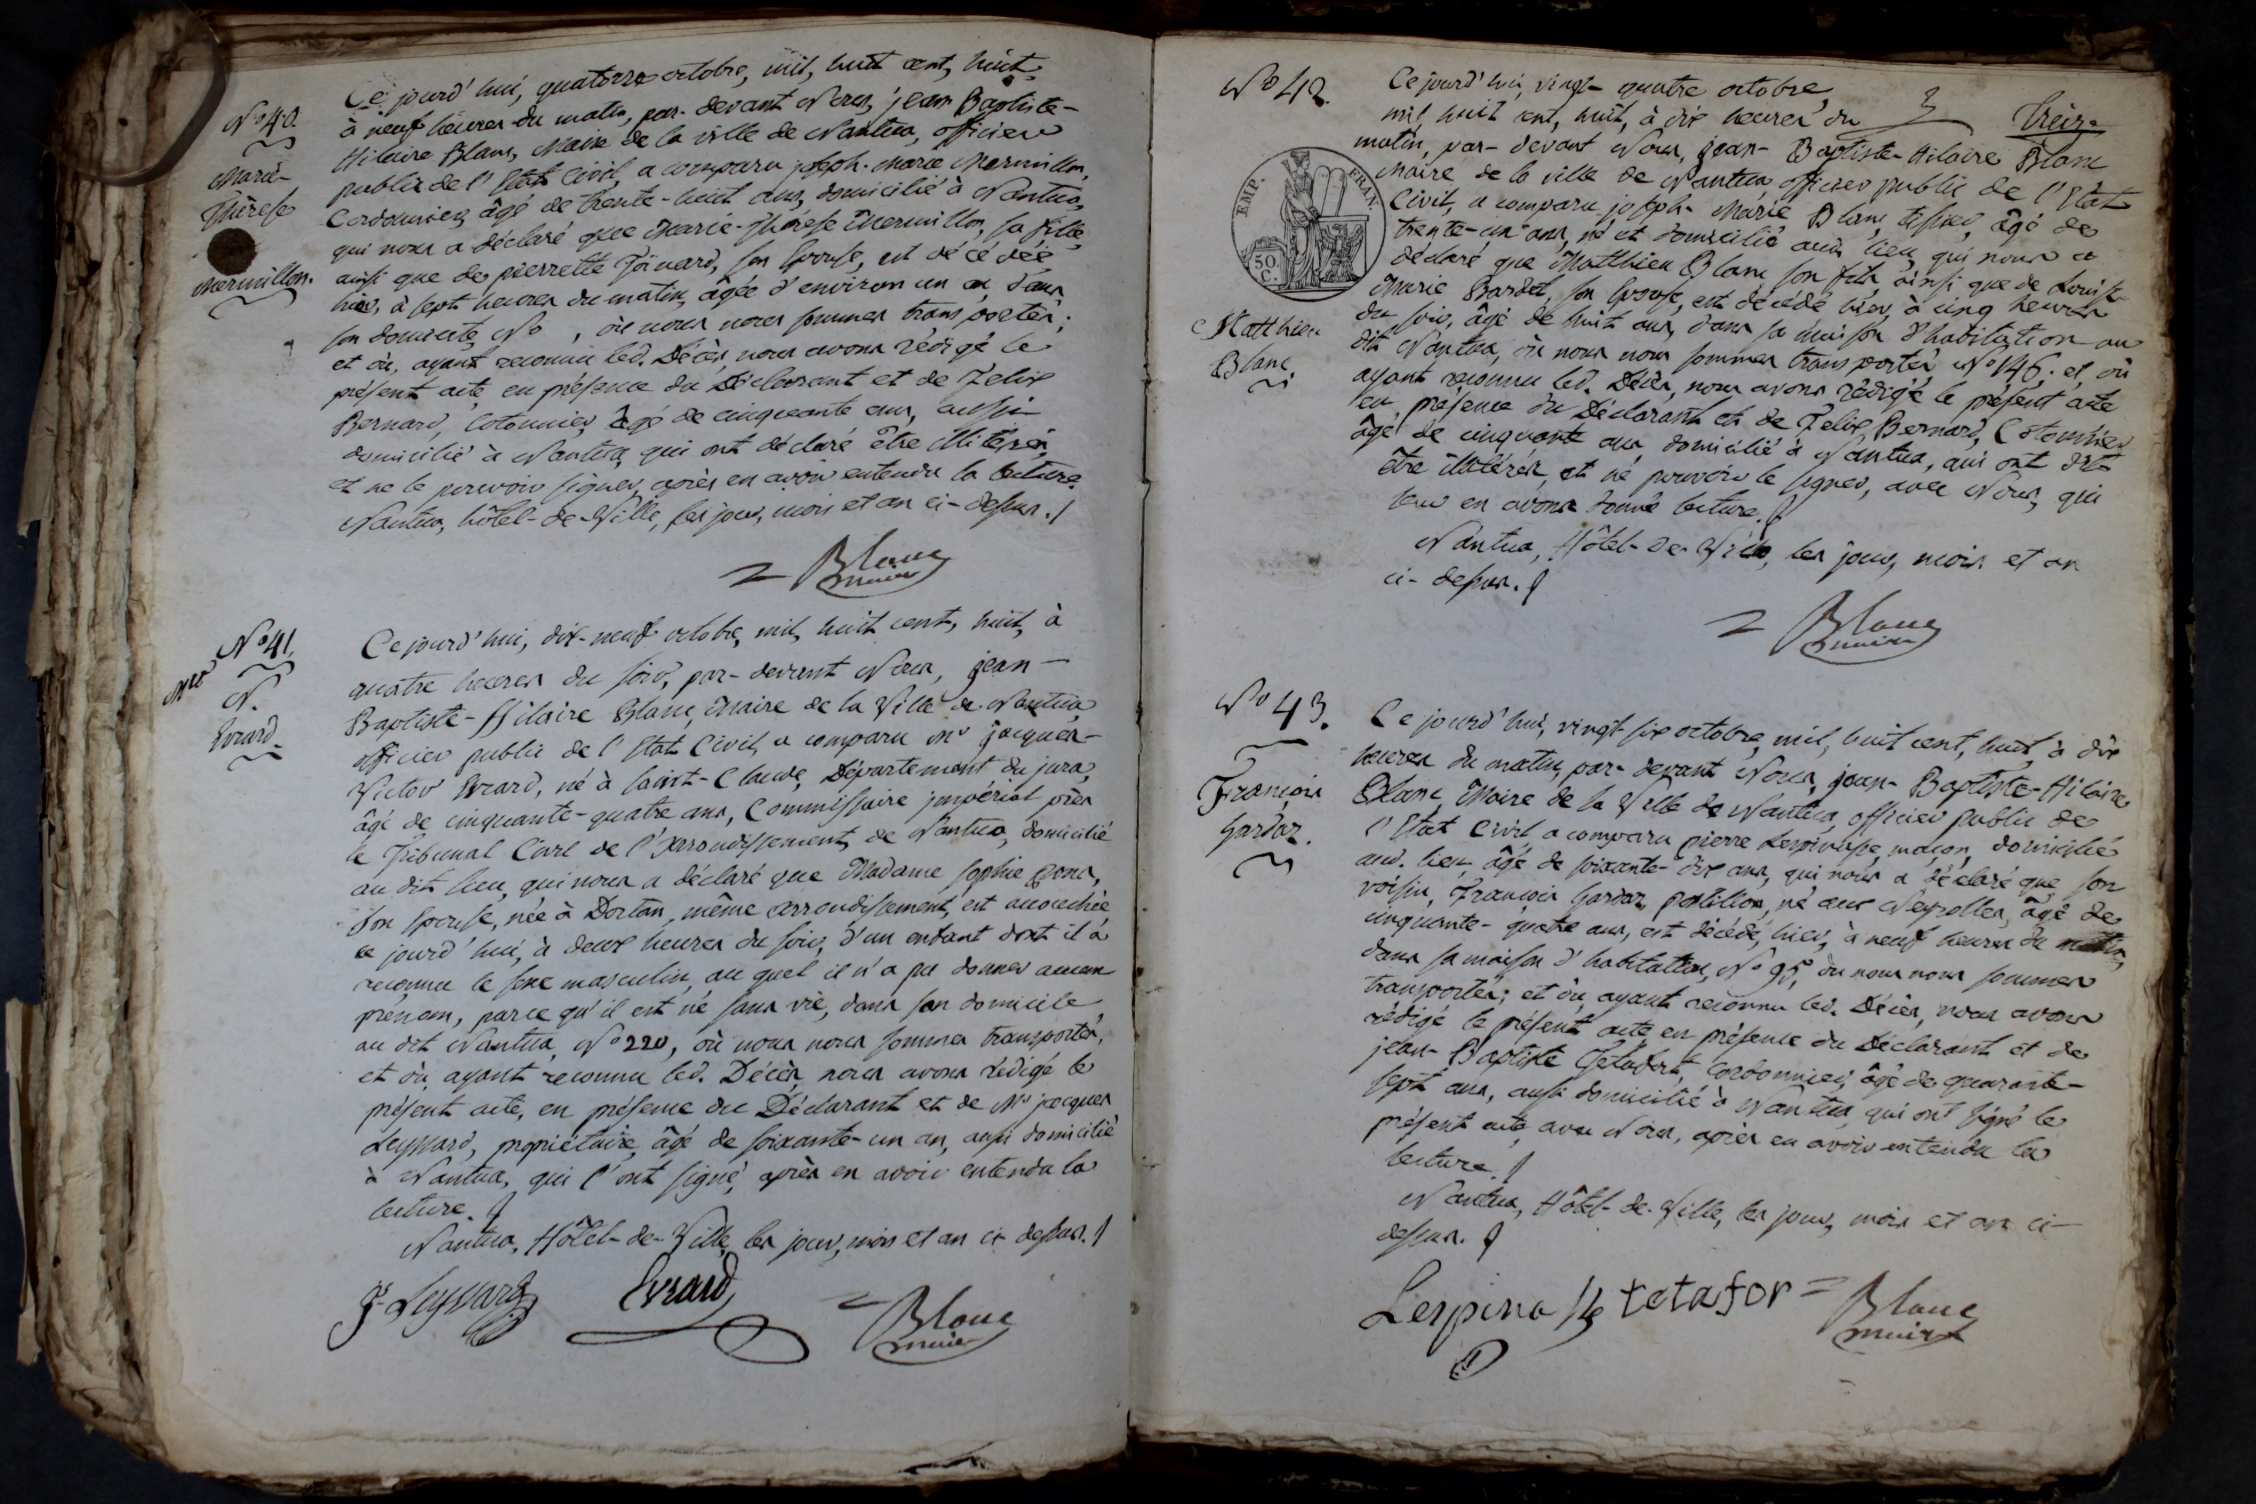 Ce jourd'hui, quatorze octobre, mil, huit cent, huit,
N° 40.
à neuf heures du matin, par-devant Nous, jean Baptiste-
Hilaire Blanc, Maire de la ville de Nantua, officier
public de l'Etat Civil, a comparu joseph-Marie Mermillon,
Marie-
Thérese
Mermillon.
Cordonnier, âgé de trente-huit ans, domicilié à Nantua,
qui nous a déclaré que Marie-Thérese Mermillon, sa fille,
ainsi que de pierrette Joinard, son Epouse, est décédée
hier, à sept heures du matin, âgée d'environ un an, dans
son domicile N° , où nous nous sommes transportés;
et où, ayant reconnu led. Décès, nous avons rédigé le
présent acte, en présence du Déclarant et de Felix
Bernard, Cotonnier, âgé de cinquante ans, aussi
domicilié à Nantua, qui ont déclaré être illitérés,
et ne le pouvoir signer, après en avoir entendu la lecture.
Nantua, hôtel-de-Ville, les jour, mois et an ci-dessus./
Blanc
maire
N° 41.
N.
Evrard.
Ce jourd'hui, dix-neuf octobre, mil, huit cent, huit, à
quatre heures du soir, par-devant Nous, jean-
Baptiste-Hilaire Blanc, Maire de la Ville de Nantua,
officier public de l'Etat Civil, a comparu Mr jacques-
Victor Evrard, né à Saint-Claude, Département du jura,
âgé de cinquante-quatre ans, Commissaire jmpérial près
le Tribunal Civil de l'Arrondissement de Nantua, domicilié
au dit lieu, qui nous a déclaré que Madame Sophie
son Epouse, née à Dortan, même arrondissement, est accouchée
ce jourd'hui, à deux heures du soir, d'un enfant dont il a
reconnu le sexe masculin, au quel il n'a pu donner aucun
prénom, parce qu'il est né sans vie, dans son domicile
au dit Nantua, N° 220, où nous nous sommes transportés,
et où, ayant reconnu led. Décès, nous avons rédigé le
présent acte, en présence du Déclarant et de Mr jacques
Leyssard, propriétaire, âgé de soixante-un an, aussi domicilié
à Nantua, qui l'ont signé, après en avoir entendu la
lecture./
Nantua, Hôtel-de-Ville, les jour, mois et an ci-dessus./
Leyssard
Evrard
Blanc
maire
N° 42.
Ce jourd'hui, vingt-quatre octobre,
mil, huit cent, huit, à dix heures du
Treize
matin, par-devant Nous, jean-Baptiste-Hilaire Blanc
Maire de la ville de Nantua, officier public de l'Etat
EMP. FRAN.
50
C.
Civil, a comparu joseph-Marie Blanc, tissier, âgé de
trente-un ans, né et domicilié aud. lieu, qui nous a
déclaré que Matthieu Blanc son fils, ainsi que de Louise-
Marie Bardet, son Epouse, est décédé hier, à cinq heures
du soir, âgé de huit ans, dans sa maison d'habitation au
Matthieu
Blanc.
dit Nantua, où nous nous sommes transportés N° 146. et, où
ayant reconnu led. Décès, nous avons rédigé le présent acte
en présence du Déclarant et de Felix Bernard, Cotonnier
âgé de cinquante ans, domicilié à Nantua, qui ont dit
être illitérés, et ne pouvoir le signer, avec Nous, qui
leur en avons donné lecture./
Nantua, Hôtel-de-Ville, les jour, mois et an
ci-dessus./
Blanc
maire
N° 43.
Ce jourd'hui, vingt-six octobre, mil, huit cent, huit, à dix
heures du matin, par-devant Nous, jean-Baptiste-Hilaire
François
Gardaz.
Blanc, Maire de la Ville de Nantua, officier public de
l'Etat Civil, a comparu pierre Lespinasse, maçon, domicilié
aud. lieu, âgé de soixante-dix ans, qui nous a déclaré que son
voisin, François Gardaz, postillon, né aux Neyrolles, âgé de
cinquante-quatre ans, est décédé, hier, à neuf heures du matin,
dans sa maison d'habitation, N° 95, où nous nous sommes
transportés; et où, ayant reconnu led. Décès, nous avons
rédigé le présent acte en présence du Déclarant et de
jean-Baptiste Cordonnier, âgé de quarante-
sept ans, aussi domicilié à Nantua, qui ont signé le
présent acte avec Nous, après en avoir entendu la
lecture./
Nantua, Hôtel-de-Ville, les jour, mois et an ci-
dessus./
tetafor
Blanc
maire